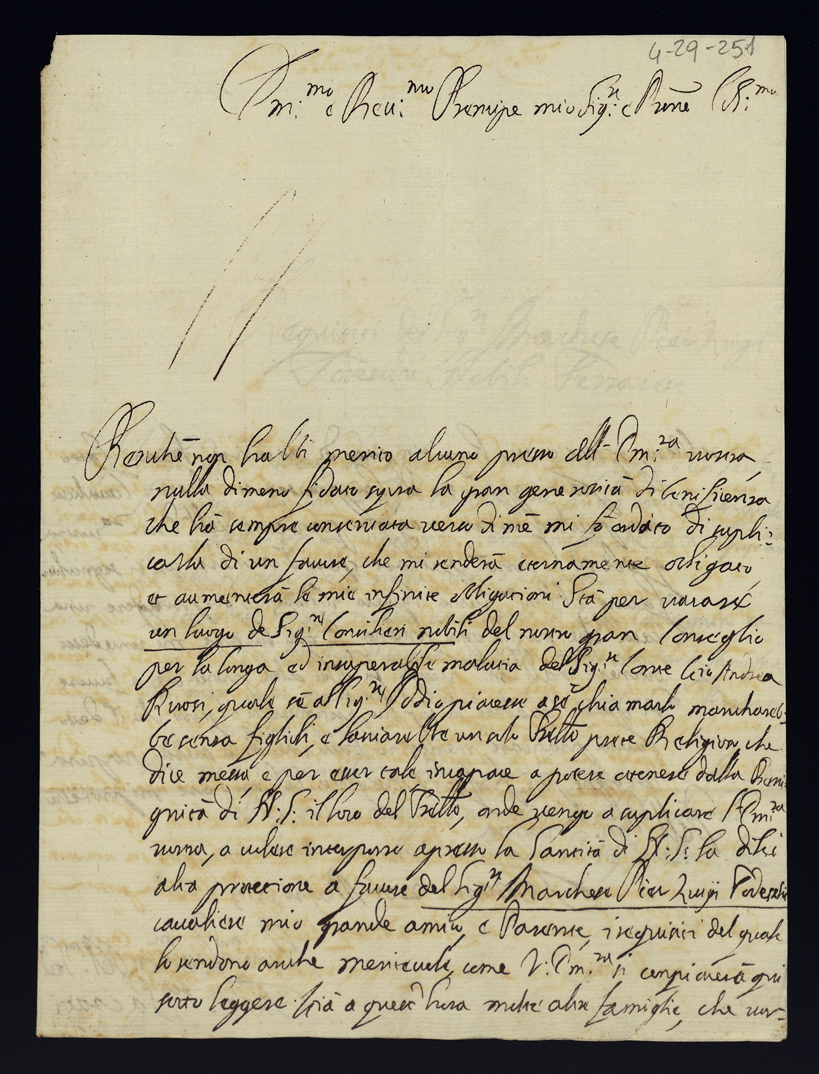 4-29-251
Em:mo e Reu:mo Prencipe mio Sig:re e Prōne Col:mo
Benchè non habbi merito alcuno presso dell' Em:za vostra
nulla dimeno fidato sopra la gran generosità di beneficenza
che hà sempre conservata verso di mè mi fò ardito di supli=
carla di un favore, che mi renderà eternamente obligato
et aumenterà le mie infinite obligationi. Stà per vacare
un luogo de Sig:ri Consilieri nobili del nostro gran Conseglio
per la longa ed insuperabile malatia del Sig:re Conte Andrea
quale se al Sig:re Iddio piacesse a sè chiamarlo manchareb=
be senza figlioli, e lasciarebbe un solo Frello prete Religioso, che
dice messa e per esser tale incapace a potere ottenere dalla Beni
gnità di N:S: il loco del Frello, onde vengo a suplicare l'Em:za
vostra, a volere interporre apresso la Santità di N:S: la di lei
alta protectione a favore del Sig:re Marchese Pier Luigi
cavaliere mio grande amico, e Parente, i requisiti del quale
lo rendono anche meritevole, come V: Em:za si compiacerà qui
sotto leggere. Già a quest'hora molte altre famiglie, che vor=
Requisiti del Sig:re Marchese Pier Luigi